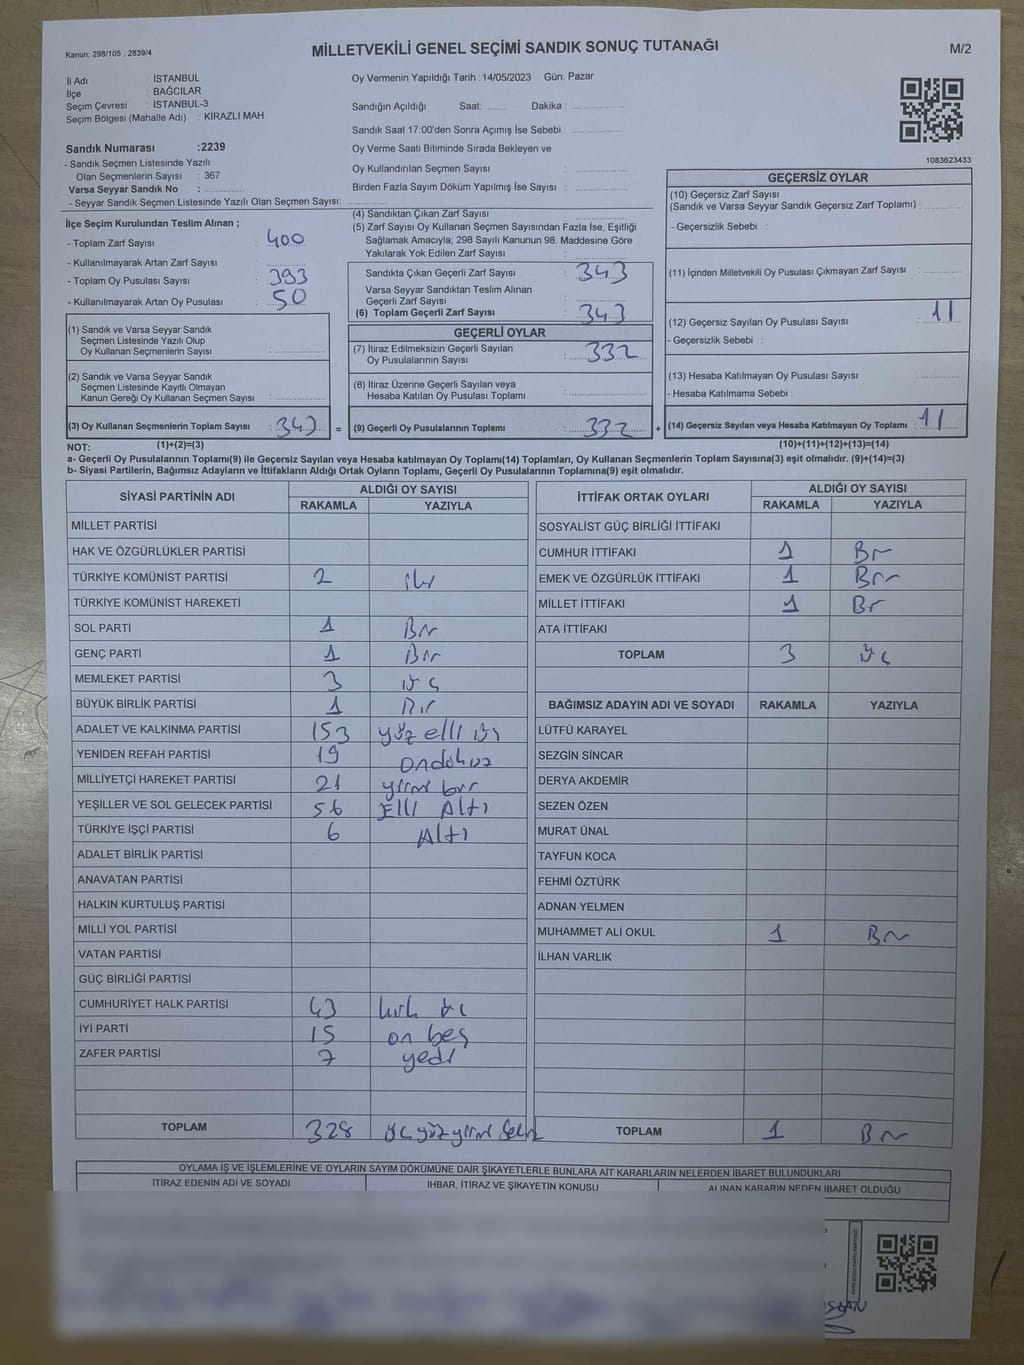 Kanun: 298/105 , 2839/4
MİLLETVEKİLİ GENEL SEÇİMİ SANDIK SONUÇ TUTANAĞI
M/2
İl Adı : İSTANBUL
İlçe : BAĞCILAR
Seçim Çevresi : İSTANBUL-3
Seçim Bölgesi (Mahalle Adı) : KİRAZLI MAH
Sandık Numarası :2239
- Sandık Seçmen Listesinde Yazılı
Olan Seçmenlerin Sayısı : 367
Varsa Seyyar Sandık No : ..............
- Seyyar Sandık Seçmen Listesinde Yazılı Olan Seçmen Sayısı: ..............
Oy Vermenin Yapıldığı Tarih :14/05/2023 Gün: Pazar
Sandığın Açıldığı Saat: ....... Dakika : ..............
Sandık Saat 17:00'den Sonra Açımış İse Sebebi : ..............
Oy Verme Saati Bitiminde Sırada Bekleyen ve
Oy Kullandırılan Seçmen Sayısı : ..............
Birden Fazla Sayım Döküm Yapılmış İse Sayısı : ..............
1083623433
İlçe Seçim Kurulundan Teslim Alınan ;
- Toplam Zarf Sayısı : 400
- Kullanılmayarak Artan Zarf Sayısı : ..............
- Toplam Oy Pusulası Sayısı : 393
- Kullanılmayarak Artan Oy Pusulası : 50
(1) Sandık ve Varsa Seyyar Sandık
Seçmen Listesinde Yazılı Olup
Oy Kullanan Seçmenlerin Sayısı : ..............
(2) Sandık ve Varsa Seyyar Sandık
Seçmen Listesinde Kayıtlı Olmayan
Kanun Gereği Oy Kullanan Seçmen Sayısı : ..............
(3) Oy Kullanan Seçmenlerin Toplam Sayısı : 343 =
(4) Sandıktan Çıkan Zarf Sayısı : ..............
(5) Zarf Sayısı Oy Kullanan Seçmen Sayısından Fazla İse, Eşitliği
Sağlamak Amacıyla; 298 Sayılı Kanunun 98. Maddesine Göre
Yakılarak Yok Edilen Zarf Sayısı : ..............
Sandıkta Çıkan Geçerli Zarf Sayısı : 343
Varsa Seyyar Sandıktan Teslim Alınan
Geçerli Zarf Sayısı : ..............
(6) Toplam Geçerli Zarf Sayısı : 343
GEÇERLİ OYLAR
(7) İtiraz Edilmeksizin Geçerli Sayılan
Oy Pusulalarının Sayısı : 332
(8) İtiraz Üzerine Geçerli Sayılan veya
Hesaba Katılan Oy Pusulası Toplamı : ..............
(9) Geçerli Oy Pusulalarının Toplamı : 332 +
GEÇERSİZ OYLAR
(10) Geçersiz Zarf Sayısı
(Sandık ve Varsa Seyyar Sandık Geçersiz Zarf Toplamı) : ..............
- Geçersizlik Sebebi :
(11) İçinden Milletvekili Oy Pusulası Çıkmayan Zarf Sayısı : ..............
(12) Geçersiz Sayılan Oy Pusulası Sayısı : 11
- Geçersizlik Sebebi :
(13) Hesaba Katılmayan Oy Pusulası Sayısı : ..............
- Hesaba Katılmama Sebebi :
(14) Geçersiz Sayılan veya Hesaba Katılmayan Oy Toplamı : 11
NOT: (1)+(2)=(3) (10)+(11)+(12)+(13)=(14)
a- Geçerli Oy Pusulalarının Toplamı(9) ile Geçersiz Sayılan veya Hesaba katılmayan Oy Toplamı(14) Toplamları, Oy Kullanan Seçmenlerin Toplam Sayısına(3) eşit olmalıdır. (9)+(14)=(3)
b- Siyasi Partilerin, Bağımsız Adayların ve İttifakların Aldığı Ortak Oyların Toplamı, Geçerli Oy Pusulalarının Toplamına(9) eşit olmalıdır.
SİYASİ PARTİNİN ADI ALDIĞI OY SAYISI
RAKAMLA YAZIYLA
MİLLET PARTİSİ
HAK VE ÖZGÜRLÜKLER PARTİSİ
TÜRKİYE KOMÜNİST PARTİSİ 2 iki
TÜRKİYE KOMÜNİST HAREKETİ
SOL PARTİ 1 Bir
GENÇ PARTİ 1 Bir
MEMLEKET PARTİSİ 3 üç
BÜYÜK BİRLİK PARTİSİ 1 Bir
ADALET VE KALKINMA PARTİSİ 153 yüz elli üç
YENİDEN REFAH PARTİSİ 19 ondokuz
MİLLİYETÇİ HAREKET PARTİSİ 21 yirmi bir
YEŞİLLER VE SOL GELECEK PARTİSİ 56 Elli Altı
TÜRKİYE İŞÇİ PARTİSİ 6 Altı
ADALET BİRLİK PARTİSİ
ANAVATAN PARTİSİ
HALKIN KURTULUŞ PARTİSİ
MİLLİ YOL PARTİSİ
VATAN PARTİSİ
GÜÇ BİRLİĞİ PARTİSİ
CUMHURİYET HALK PARTİSİ 43 kırk üç
İYİ PARTİ 15 on beş
ZAFER PARTİSİ 7 yedi
TOPLAM 328 üç yüz yirmi sekiz
İTTİFAK ORTAK OYLARI ALDIĞI OY SAYISI
RAKAMLA YAZIYLA
SOSYALİST GÜÇ BİRLİĞİ İTTİFAKI
CUMHUR İTTİFAKI 1 Bir
EMEK VE ÖZGÜRLÜK İTTİFAKI 1 Bir
MİLLET İTTİFAKI 1 Bir
ATA İTTİFAKI
TOPLAM 3 üç
BAĞIMSIZ ADAYIN ADI VE SOYADI RAKAMLA YAZIYLA
LÜTFÜ KARAYEL
SEZGİN SİNCAR
DERYA AKDEMİR
SEZEN ÖZEN
MURAT ÜNAL
TAYFUN KOCA
FEHMİ ÖZTÜRK
ADNAN YELMEN
MUHAMMET ALİ OKUL 1 Bir
İLHAN VARLIK
TOPLAM 1 Bir
OYLAMA İŞ VE İŞLEMLERİNE VE OYLARIN SAYIM DÖKÜMÜNE DAİR ŞİKAYETLERLE BUNLARA AİT KARARLARIN NELERDEN İBARET BULUNDUKLARI
İTİRAZ EDENİN ADI VE SOYADI İHBAR, İTİRAZ VE ŞİKAYETİN KONUSU ALINAN KARARIN NEDEN İBARET OLDUĞU